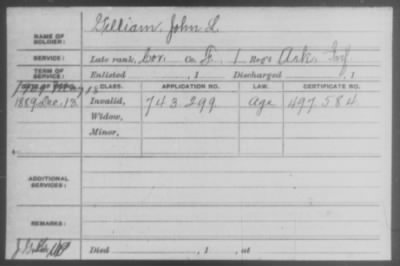 NAME OF SOLDIER: Gilliam, John L.
SERVICE: Late rank, Cor. Co. F, 1 Reg't Ark. Inf
TERM OF SERVICE: Enlisted , 1 Discharged , 1
CLASS. APPLICATION NO. LAW. CERTIFICATE NO.
1889 Dec. 13 Invalid, 743.299 Age 497.584
Widow,
Minor,
ADDITIONAL SERVICES:
REMARKS:
Died , 1 , at